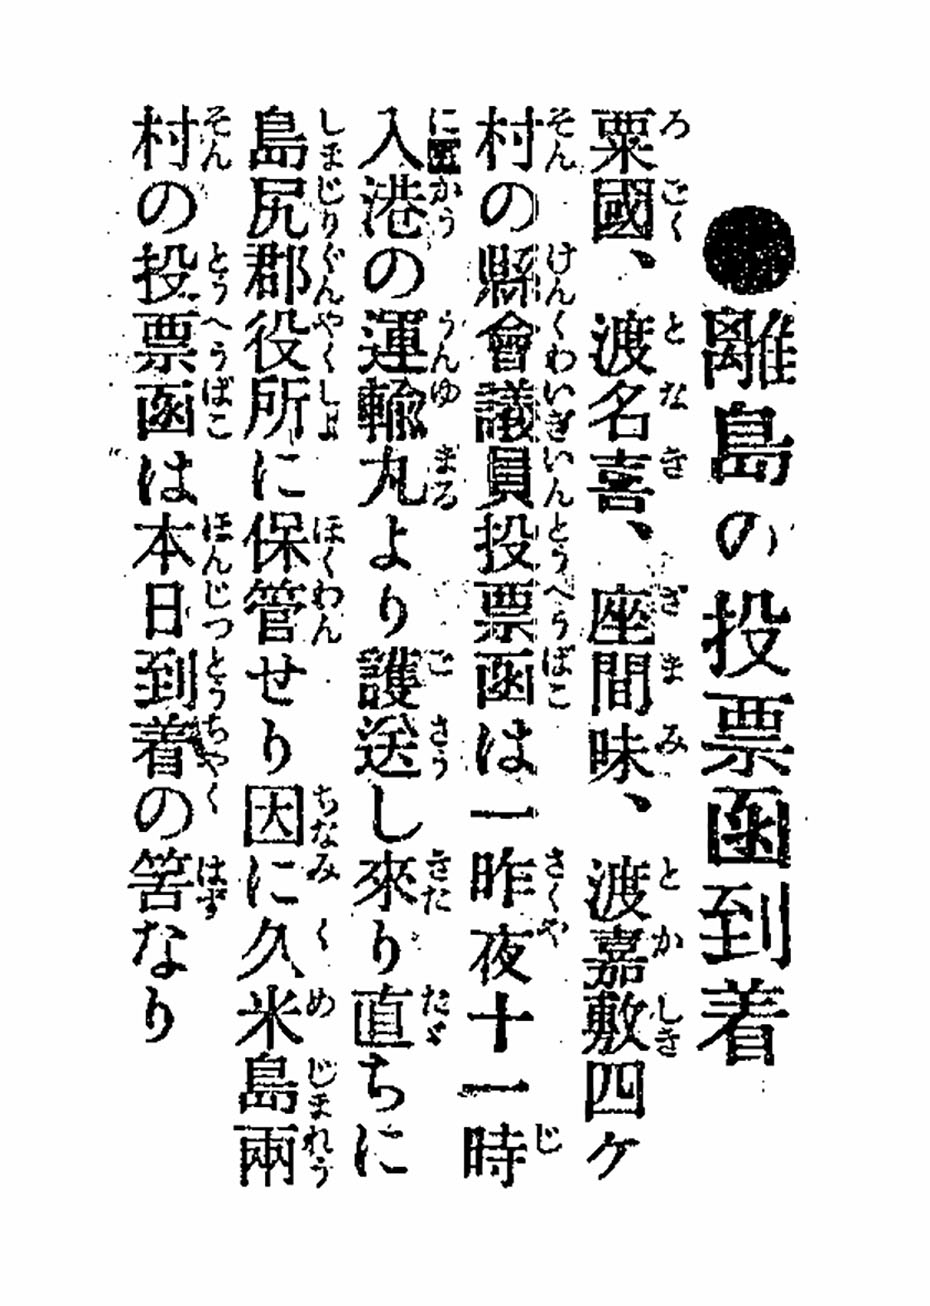 ●離島の投票函到着
粟國、渡名喜、座間味、渡嘉敷四ケ
村の縣會議員投票函は一昨夜十一時
入港の運輸丸より護送し來り直ちに
島尻郡役所に保管せり因に久米島兩
村の投票函は本日到着の筈なり